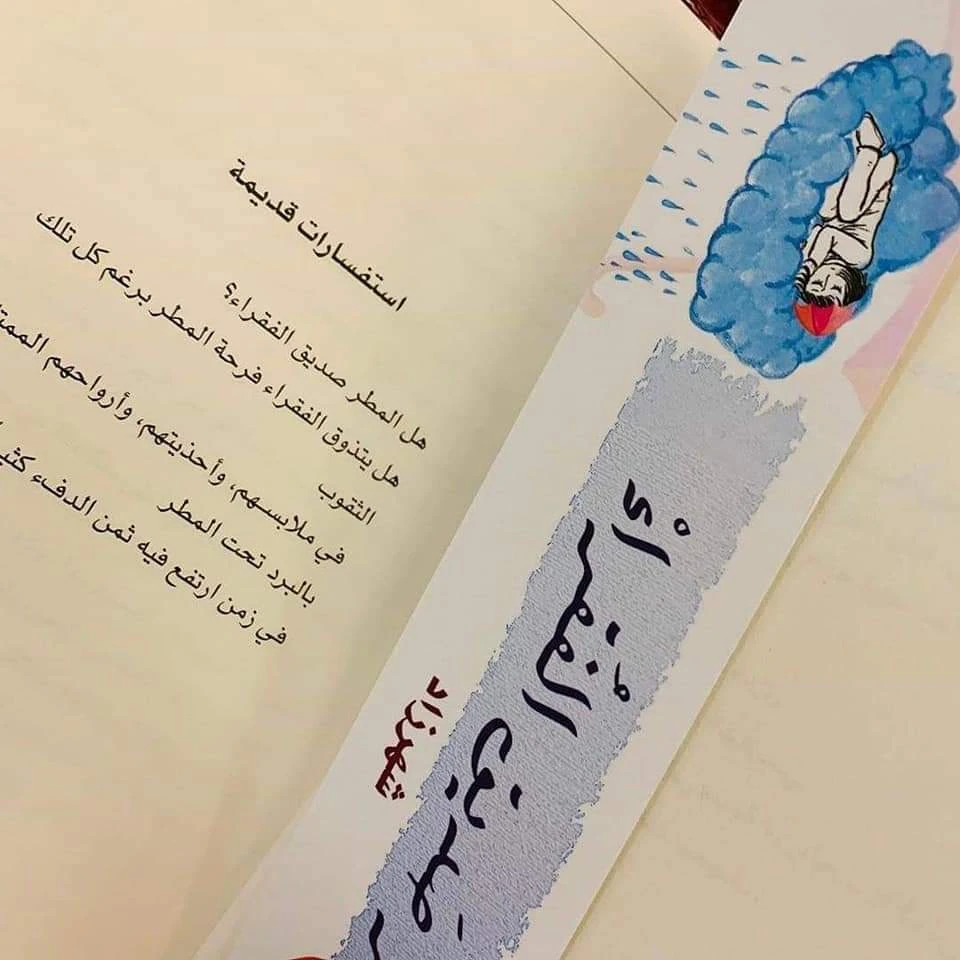 استفسارات قديمة
هل المطر صديق الفقراء؟
هل يتذوق الفقراء فرحة المطر برغم كل تلك
الثقوب
في ملابسهم، وأحذيتهم، وأرواحهم
بالبرد تحت المطر
في زمن ارتفع فيه ثمن الدفء
صَديق الفُقراء
شهرزاد